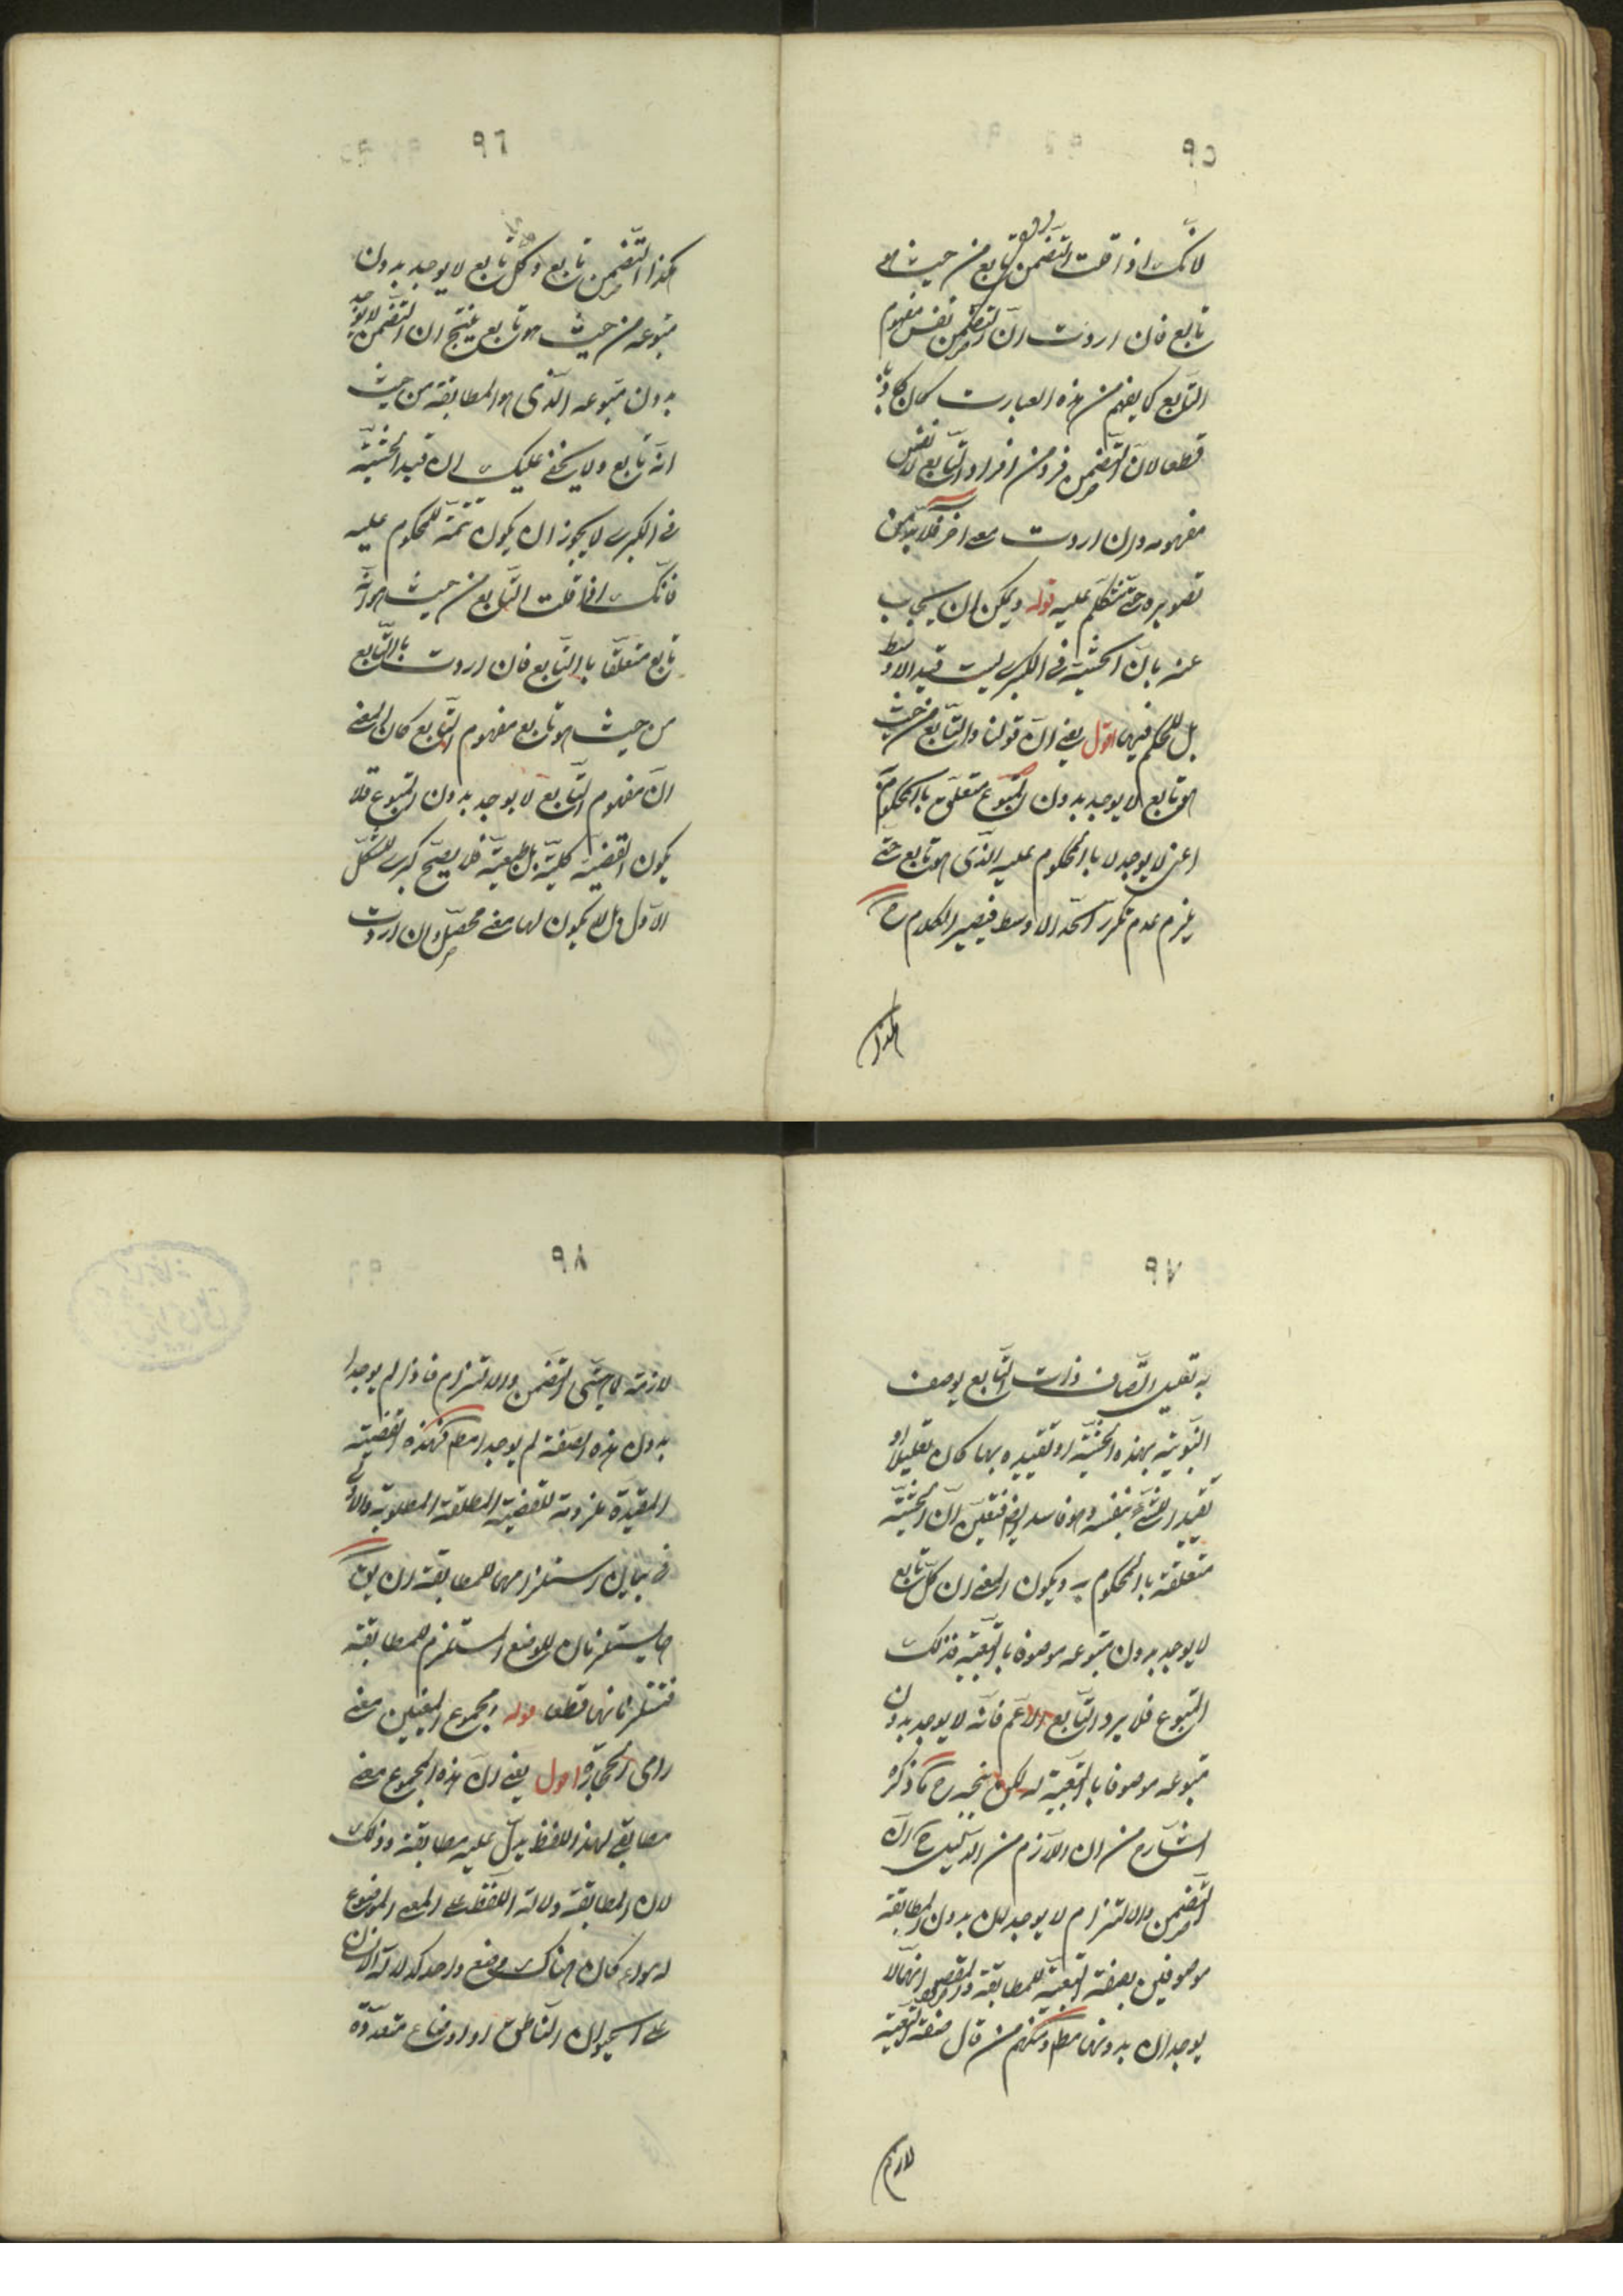 ٩٥
لانّك اذا قلت التّضمن تابع من حيث هو
تابع فان اردت انّ التّضمن نفس مفهوم
التّابع كما يفهم من هذه العبارت كان كاذبا
قطعا لانّ التّضمن فرد من افراد التّابع لا نفس
مفهومه وان اردت معنى اخر فلا بدّ من
تصويره حتّى نتكلّم عليه قوله ويمكن ان يجاب
عنه بانّ الحيثيّة فى الكبرى ليست قيد الاوسط
بل للحكم فيها اقول يعنى انّ قولنا والتّابع من حيث
هو تابع لا يوجد بدون المتبوع متعلّق بالمحكوم به
اعنى لا يوجد لا باالمحكوم عليه الّذى هو تابع حتّى
يلزم عدم تكرّر الحدّ الاوسط فيصير الكلام ح
هكذا
٩٦
هكذا التّضمن تابع وكلّ تابع لا يوجد بدون
متبوعه من حيث هو تابع ينتج ان التّضمن لا يوجد
بدون متبوعه الّذى هو المطابقة من حيث
انّه تابع ولا يخفى عليك ان قيد الحيثيّة
فى الكبرى لا يجوز ان يكون تتمّة للمحكوم عليه
فانّك اذا قلت التّابع من حيث هو انّه
تابع متعلّقا باالتّابع فان اردت باالتّابع
من حيث هو تابع مفهوم التّابع كان المعنى
انّ مفهوم التّابع لا يوجد بدون المتبوع فلا
يكون القضيّة كليّة بل طبيعيّة فلا يصحّ كبرى للشّكل
الاوّل بل لا يكون لها معنى محصّل وان اردت
٩٧
به تعليل اتّصاف ذات التّابع بوصف
التبوعيّة بهذه الحيثيّة او تقييده بها كان تعليلا او
تقييدا للشّئ بنفسه وهو فاسد ايضا فتعيّن انّ الحيثيّة
متعلّقة باالمحكوم به ويكون المعنى ان كلّ تابع
لا يوجد بدون متبوعه موصوفا باالتّبعيّة لذلك
المتبوع فلا يرد التّابع الاعمّ فانّه لا يوجد بدون
متبوعه موصوفا باالتّبعيّة له لكن يتّجه ح ما ذكره
الشّارح من ان اللّازم من الدّليل ح انّ
التّضمن والالتزام لا يوجدان بدون المطابقة
موصوفين بصفة التّبعيّة للمطابقة والمقصود انهما لا
يوجدان بدونها مط ومنهم من قال صفة التّبعيّة
لازمة
٩٨
لازمة لماهيّتى التّضمن والالتزام فاذا لم يوجدا
بدون هذه الصّفة لم يوجدا مط فهذه القضيّة
المقيّدة ملزومة للقضيّة المطلقة المطلوبة والاولى
فى بيان استلزامهما للمطابقة ان يق
هما يستلزمان للوضع المستلزم للمطابقة
فيستلزمانها قطعا قوله ومجموع المعنيين معنى
رامى الحجارة اقول يعنى انّ هذه المجموع معنى
مطابقى لهذا اللفظ يدلّ عليه مطابقة وذلك
لان المطابقة دلالة اللّفظ على المعنى الموضوع
له سواء كان هناك وضع واحد كدلالة الانسان
على الحيوان النّاطق او اوضاع متعدّدة